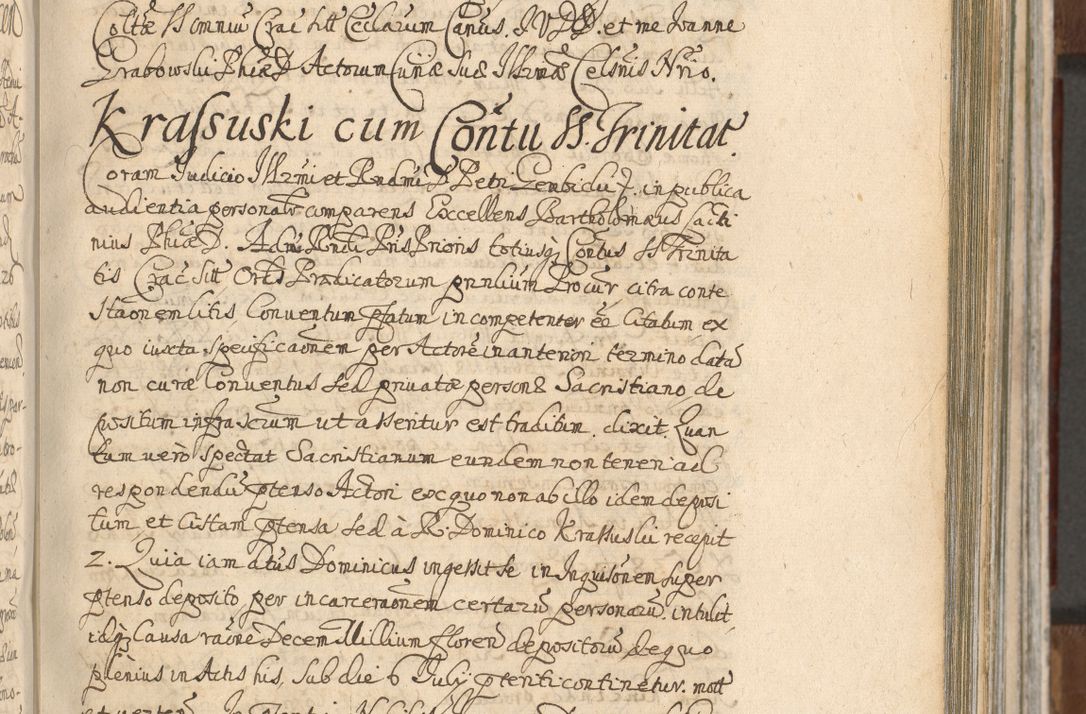 Coll̃tæ SS omniũ Crac̃ sitt̃ Ecclarum Canus. J V D D. et me Joanne
Grabowski Phiæ D Actorum Curiæ Suæ Illr̃mæ Celsnis Nrio.
Krassuski cum Con̄tu SS. Trinitat̃.
Coram Judicio Illrmi et Rndmi D Petri Gembicki E. in publica
audientia personalr̃ comparens Excellens Bartholomæus Jacki
nius Phiæ D. Admi Rndi Pris Prioris totiusq3 Con̄tus SS Trinita
tis Crac̃ sitt̃ Ord̃s Prædicatorum gñalium Procur̃ citra conte
staõnem litis Conventum p̃fatum incompetenter eẽ Citatum ex
quo iuxta specificaõnem per Actorẽ in anteriori termino datã
non curæ Conventus sed privatæ personæ Sacristiano de
positum infrascrum ut asseritur est traditum. dixit. Quan
tum verò spectat Sacristianum eundem non teneri ad
respondendũ p̃tenso Actori ex quo non ab illo idem deposi
tum et Cistam p̃tensa sed à R. Dominico Krassuski recepit
2. Quia iam dtus Dominicus ingessit se in Inquisõnem super
p̃tenso deposito per incarceraõnem certarũ personarũ. intulit
idq3 Causa raõne Decem Millium floren̄ depositorũ de quo
plenius in Actis his, sub die 6 Julij p̃tenti continetur. mott̃